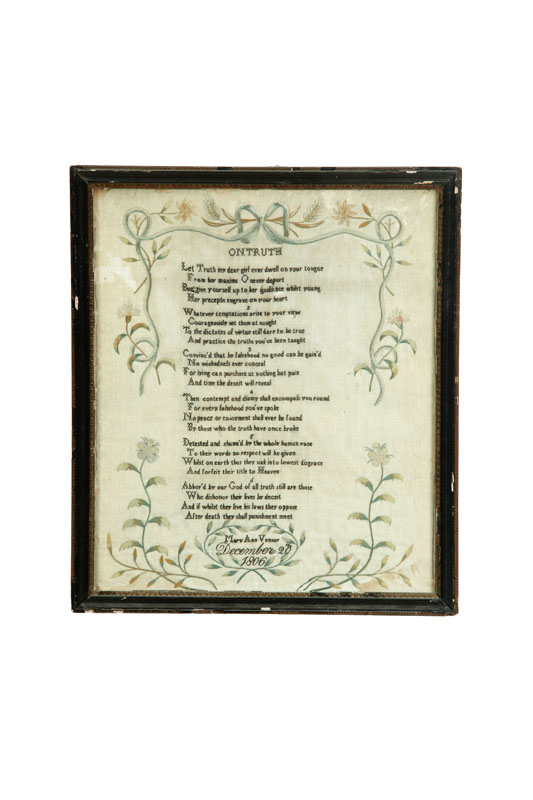 ON TRUTH
Let Truth my dear girl ever dwell on your tongue
From her maxims O never depart
But give yourself up to her guidance whilst young
Her precepts engrave on your heart
2
Whatever temptations arise to your view
Courageously set them at nought
To the dictates of virtue still dare to be true
And practice the truths you've been taught
3
Convinc'd that by falsehood no good can be gain'd
No wickedness ever conceal
For lying can purchase us nothing but pain
And time the deceit will reveal
4
Then contempt and dismy shall encompass you round
For every falsehood you've spoke
No peace or enjoyment shall ever be found
By those who the truth have once broke
5
Detested and shunn'd by the whole human race
To their words no respect will be given
Whilst on earth thus they sink into lowest disgrace
And forfeit their title to Heaven
6
Abhor'd by our God of all truth still are those
Who dishonor their lives by deceit
And if whilst they live his laws they oppose
After death they shall punishment meet
Mary Ann Venner
December 20
1806